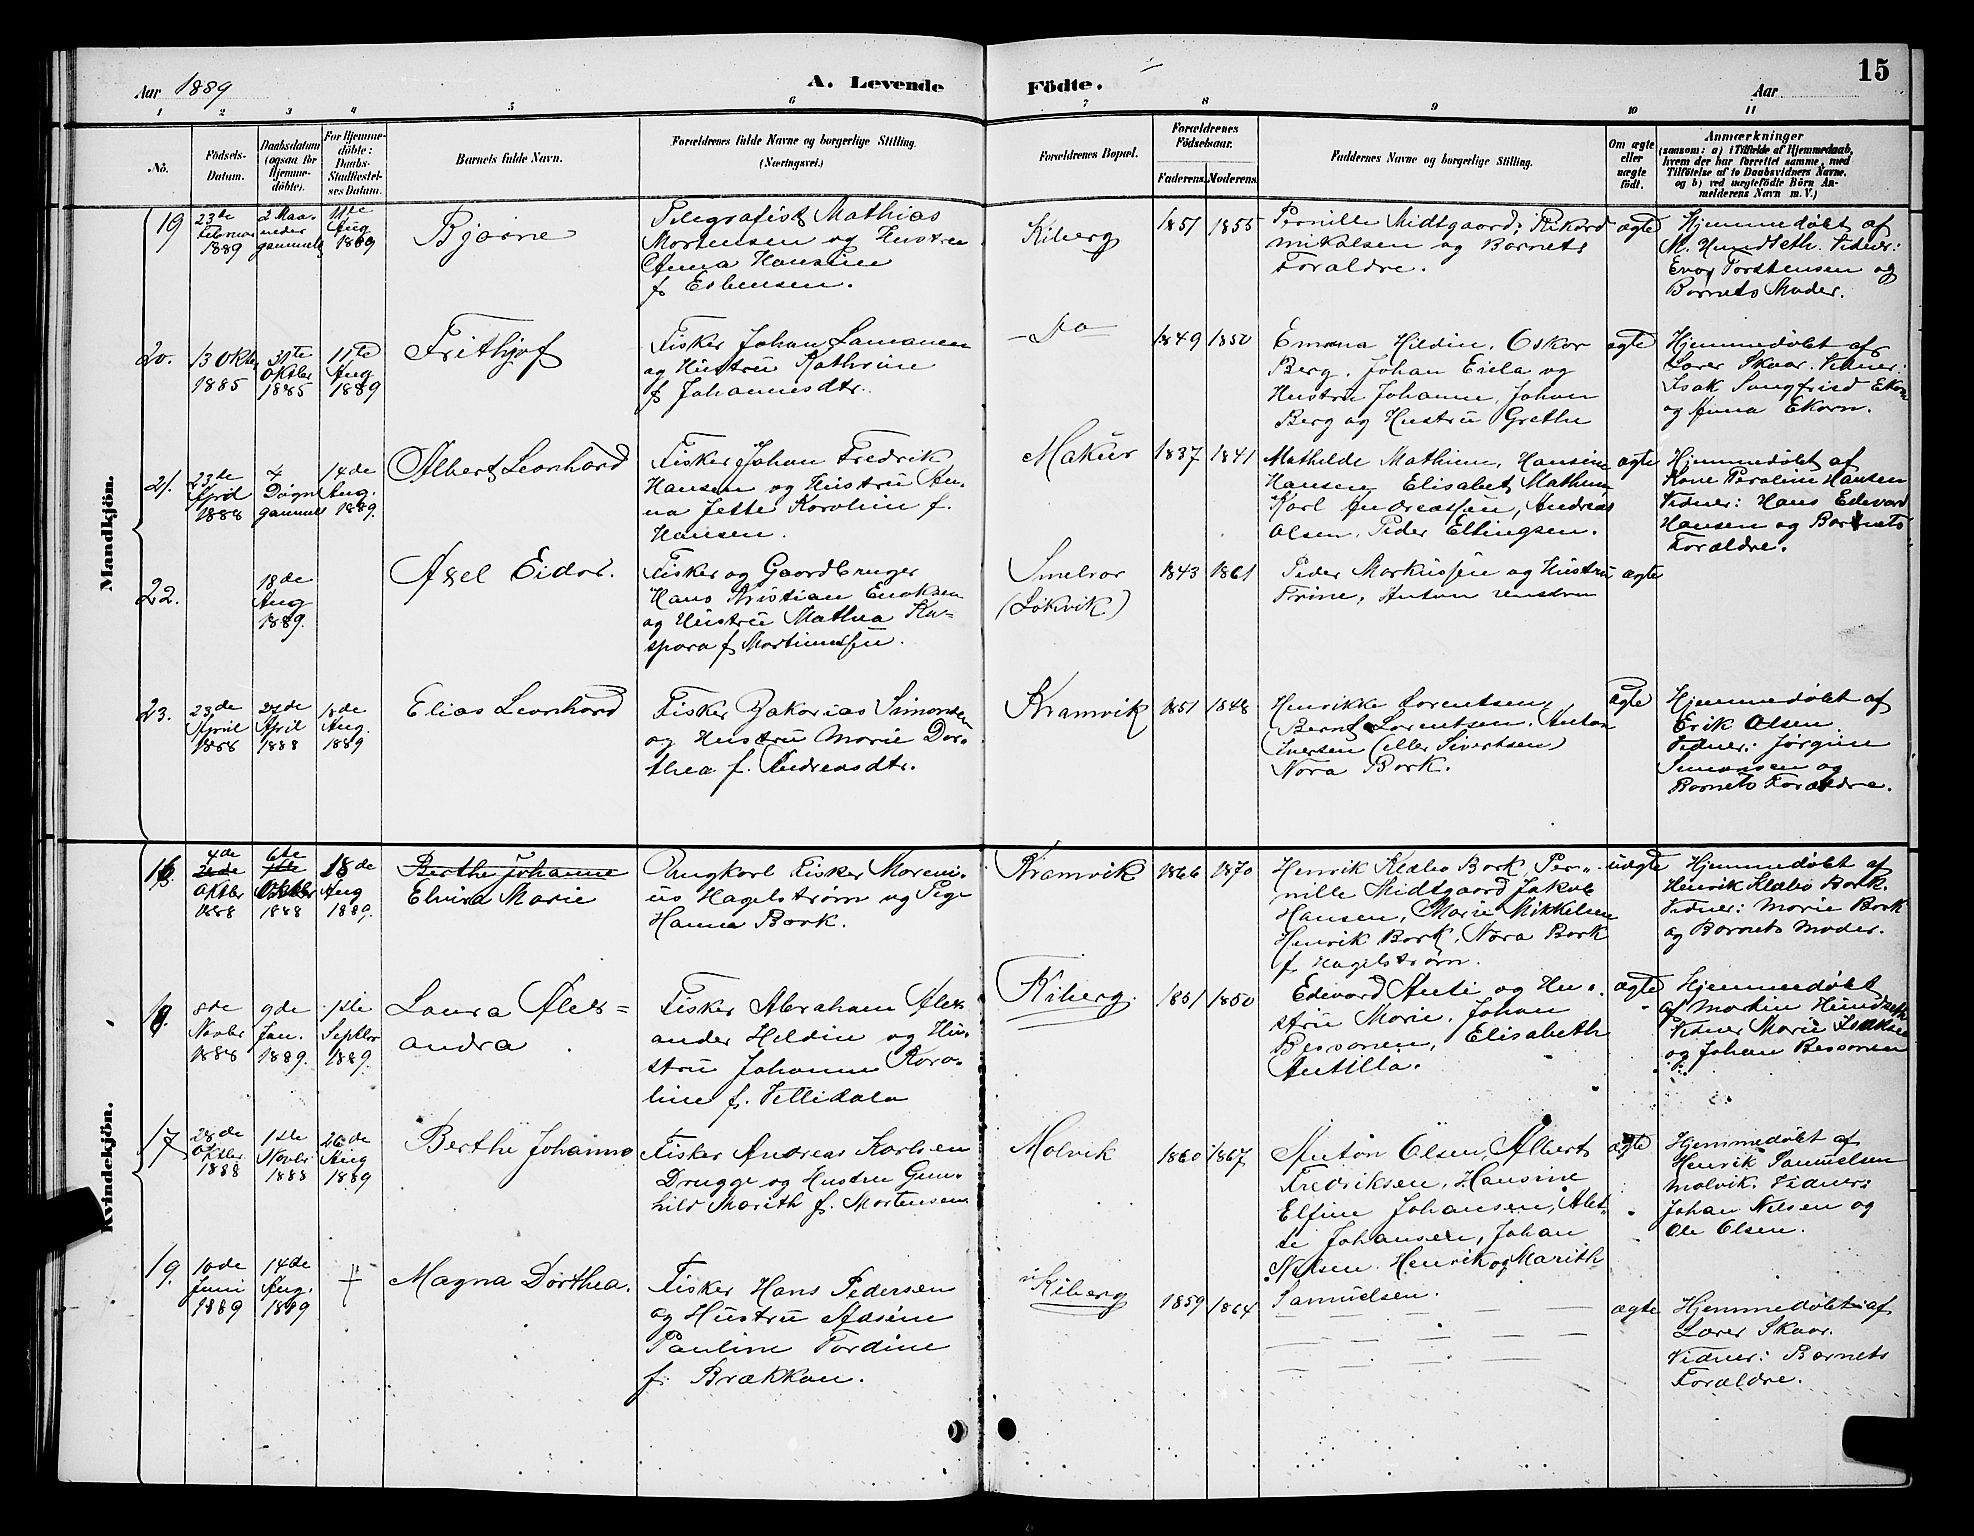 Aar 1889
A. Levende
Födte.
15
Aar
1 2 3 4 5 6 7 8 9 10 11
No.
Födsels-
Datum.
Daabsdatum
(ogsaa for
Hjemme-
döbte).
For Hjemme-
döbte:
Daabs-
Stadfæstel-
ses Datum.
Barnets fulde Navn.
Forældrenes fulde Navne og borgerlige Stilling.
(Næringsvei.)
Forældrenes Bopæl.
Forældrenes
Födselsaar.
Faderens. Moderens.
Faddernes Navne og borgerlige Stilling.
Om ægte
eller
uægte
födt.
Anmærkninger
(saasom: a) i Tilfælde af Hjemmedaab,
hvem der har forrettet samme, med
Tilföielse af to Daabsvidners Navne,
og b) ved uægtefödte Börn An-
melderens Navn m. V.)
Mandkjön.
19
23de
Februar
1889
2 Maa-
neder
gammel
11te
Aug
1889
Bjarne
Telegrafist Mathias
Mortensen og Hustru
Anna Hansine
f. Esbensen.
Kiberg
1851 1855
Pernille Midtgaard; Rikard
Mikalsen og Barnets
Forældre.
ægte
Hjemmedøbt af
M. Hundseth. Vidner:
Torstensen og
Barnets Moder.
20.
13 Oktbr
1885
31te
Oktbr
1885
11te
Aug
1889
Frithjof
Fisker Johan Lamanen
og Hustru Kathrine
f. Johannesdtr.
Do
1849 1850
Emma Hildin, Oskar
Berg, Johan Eiela og
Hustru Johanne, Johan
Berg og Hustru Grethe
ægte
Hjemmedøbt af
Lærer Skaar. Vidner:
Isak Sangfried Ekorn
og Anna Ekorn.
21.
23de
April
1888
7
Døgn
gammel
14de
Aug.
1889.
Albert Leonhard
Fisker Johan Fredrik
Hansen og Hustru An-
na Jette Karoline f.
Hansen.
Makur
1837 1841
Mathilde Mathisen, Hansine
Hansen Elisabet Mathisen
Karl Andreassen, Andreas
Olsen, Peder Ellingsen.
ægte
Hjemmedøbt af
Kone Peroline Hansen
Vidner: Hans Edevard
Hansen og Barnets
Forældre.
22.
18de
Aug
1889.
Axel Eidar.
Fisker og Gaardbruger
Hans Kristian Enoksen
og Hustru Mathea Ka-
spara f. Mortinussen.
Smelror
(Løkvik)
1843 1861
Peder Markussen og Hustru
Trine, Anton
ægte
23.
23de
April
1888
27de
April
1888
18de
Aug.
1889
Elias Leonhard
Fisker Zakarias Simonsen
og Hustru Marie Doro-
thea f. Andreasdtr.
Kramvik
1851 1848
Henrikke Lorentsen,
Bernt Lorentsen, Anton
Iversen (eller Sivertsen)
Nora Bork.
ægte
Hjemmedøbt af
Erik Olsen
Vidner: Jørgine
Simonsen og
Barnets Forældre.
Kvindekjön.
16.
4de
Oktbr
1888
6te
Oktbr
1888
18de
Aug
1889.
Berthe Johanne
Elvira Marie
Ungkarl Fisker Mareni-
us Hagelstrøm og Pige
Hanna Bork.
Kramvik
1866 1870
Henrik Klæbo Bork, Per-
nille Midtgaard, Jakob
Hansen, Marie Mikkelsen
Henrik Bork, Nora Bork
f. Hagelstrøm.
uægte
Hjemmedøbt af
Henrik Klæbo Bork.
Vidner: Marie Bork
og Barnets Moder.
18.
8de
Novbr
1888
9de
Jan.
1889.
1ste
Septbr
1889.
Laura Alex=
andra
Fisker Abraham Alex
ander Heldin og Hu-
stru Johanne Karo-
line f. Vellidalo
Kiberg.
1851 1850
Edevard Anti og Hu-
stru Marie, Johan
Bessonen, Elisabeth
Antilla.
ægte
Hjemmedøbt
af Martin Hundseth
Vidner Marie Isaksen
og Johan Bessonen
17
28de
Oktbr
1888
1ste
Novbr
1888
26de
Aug
1889
Berthe Johanne
Fisker Andreas Karlsen
Drugge og Hustru Gun-
hild Marith f. Mortensen
Molvik
1860 1867
Anton Olsen, Albert
Fredriksen, Hansine
Elfine Johansen, Alet-
te Johansen, Johan
Nilsen. Henrik og Marith
Samuelsen.
ægte
Hjemmedøbt af
Henrik Samuelsen
Molvik. Vidner:
Johan Nilsen og
Ole Olsen.
19.
10de
Juni
1889
14de
Aug.
1889
+
Magna Dorthea.
Fisker Hans Pedersen
og Hustru Adsine
Pauline Tordine
f. Brækkan.
Kiberg
1859 1864
ægte
Hjemmedøbt af
Lærer Skaar.
Vidner: Barnets
Forældre.